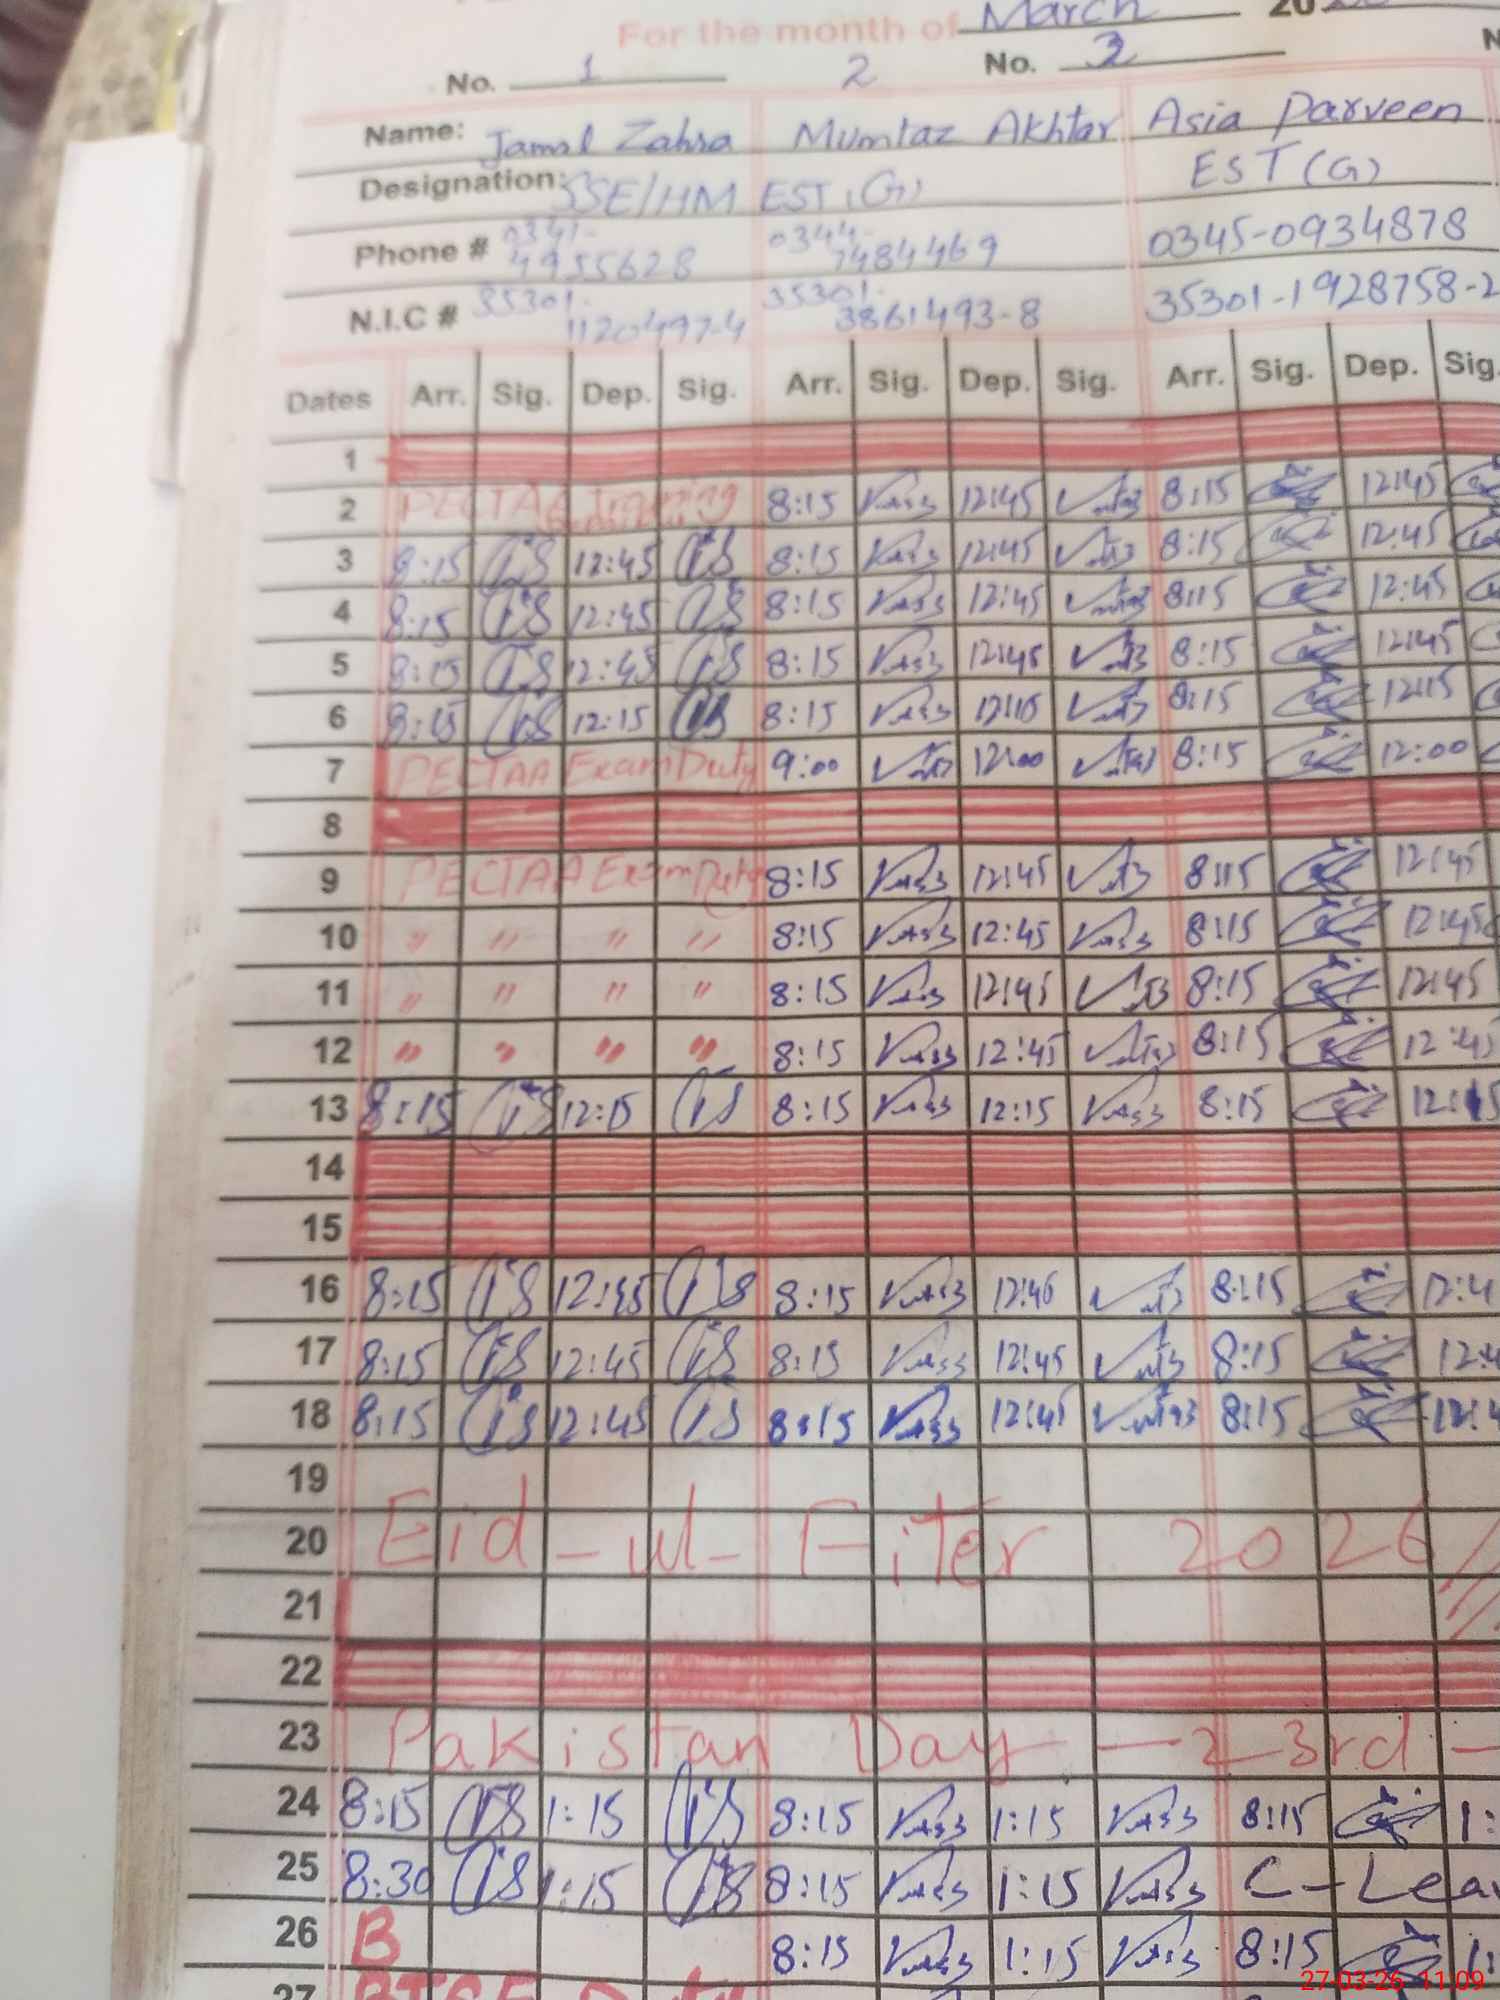 For the month of March 20
No. 1 2 No. 3 N
Name: Jamal Zahra Mumtaz Akhtar Asia Parveen
Designation: SSE/HM EST (G) EST (G)
Phone # 0341-4955628 0344-7484469 0345-0934878
N.I.C # 35301-1120497-4 35301-3861493-8 35301-1928758-2
Dates Arr. Sig. Dep. Sig. Arr. Sig. Dep. Sig. Arr. Sig. Dep. Sig.
1
2 PECTAA Training 8:15 12:45 8:15 12:45
3 8:15 12:45 8:15 12:45 8:15 12:45
4 8:15 12:45 8:15 12:45 8:15 12:45
5 8:15 12:45 8:15 12:45 8:15 12:45
6 8:15 12:15 8:15 12:15 8:15 12:15
7 PECTAA Exam Duty 9:00 12:00 8:15 12:00
8
9 PECTAA Exam Duty 8:15 12:45 8:15 12:45
10 " " " " 8:15 12:45 8:15 12:45
11 " " " " 8:15 12:45 8:15 12:45
12 " " " " 8:15 12:45 8:15 12:45
13 8:15 12:15 8:15 12:15 8:15 12:15
14
15
16 8:15 12:45 8:15 12:46 8:15 12:4
17 8:15 12:45 8:15 12:45 8:15 12:4
18 8:15 12:45 8:15 12:45 8:15 12:4
19
20 Eid-ul-Fiter 2026
21
22
23 Pakistan Day - 23rd -
24 8:15 1:15 8:15 1:15 8:15 1:
25 8:30 1:15 8:15 1:15 C-Lea
26 B 8:15 1:15 8:15 1:
27
27-03-26 11:09